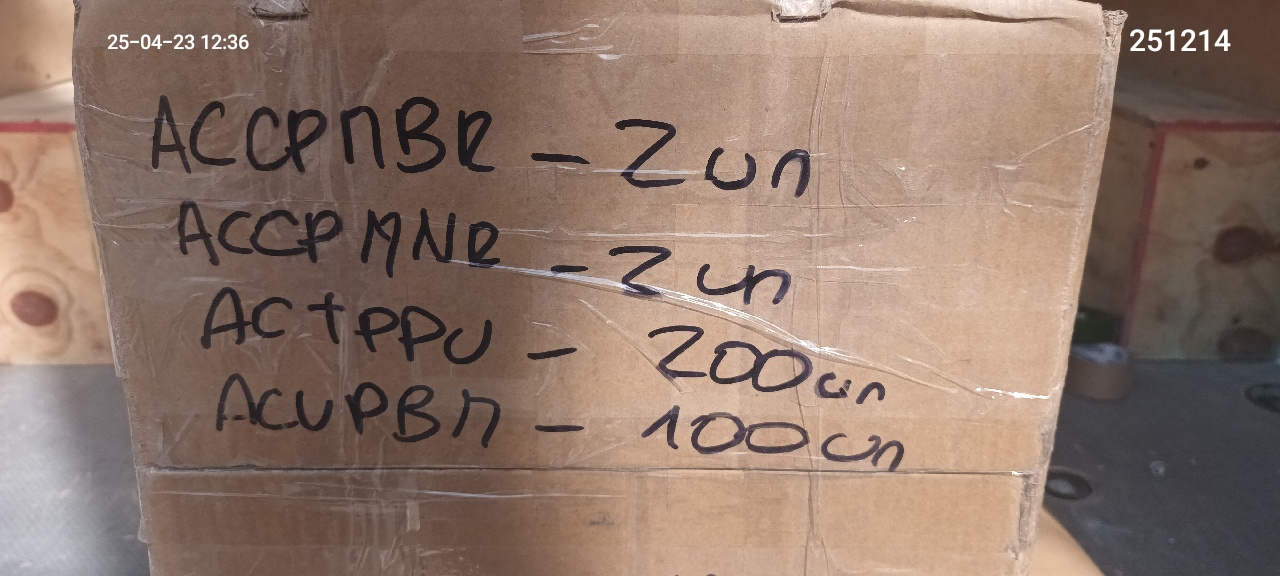 25-04-23 12:36
251214
ACCPMBR - 2 un
ACCPMNR - 2 un
ACTPPU - 200un
ACUPBM - 100un